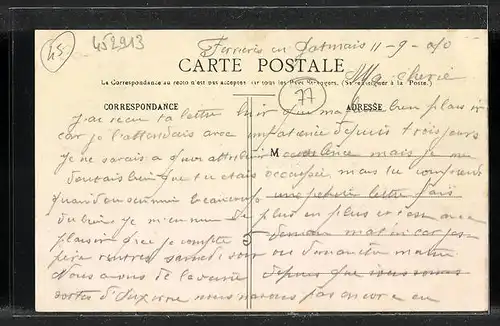 45
452913
Ferrieres en Gatinais 11-9-
CARTE POSTALE
Ma cherie
La Correspondance au recto n'est pas acceptée par tous les Pays étrangers. (Se renseigner à la Poste.)
77
CORRESPONDANCE
ADRESSE
J'ai reçu ta lettre hier qui m'a fait bien plaisir
car je l'attendais avec impatience depuis trois jours
Je ne savais a quoi attribuer M ce silence mais je me
doutais bien que tu etais occupée mais tu comprends
quand on s'ennuie beaucoup une petite lettre fait
du bien je m'ennuie de plus en plus et c'est avec
plaisir que je compte demain matin car j'es
père rentrer samedi soir ou dimanche matin
Nous avons de la veine depuis que nous sommes
nous n'avons pas encore eu